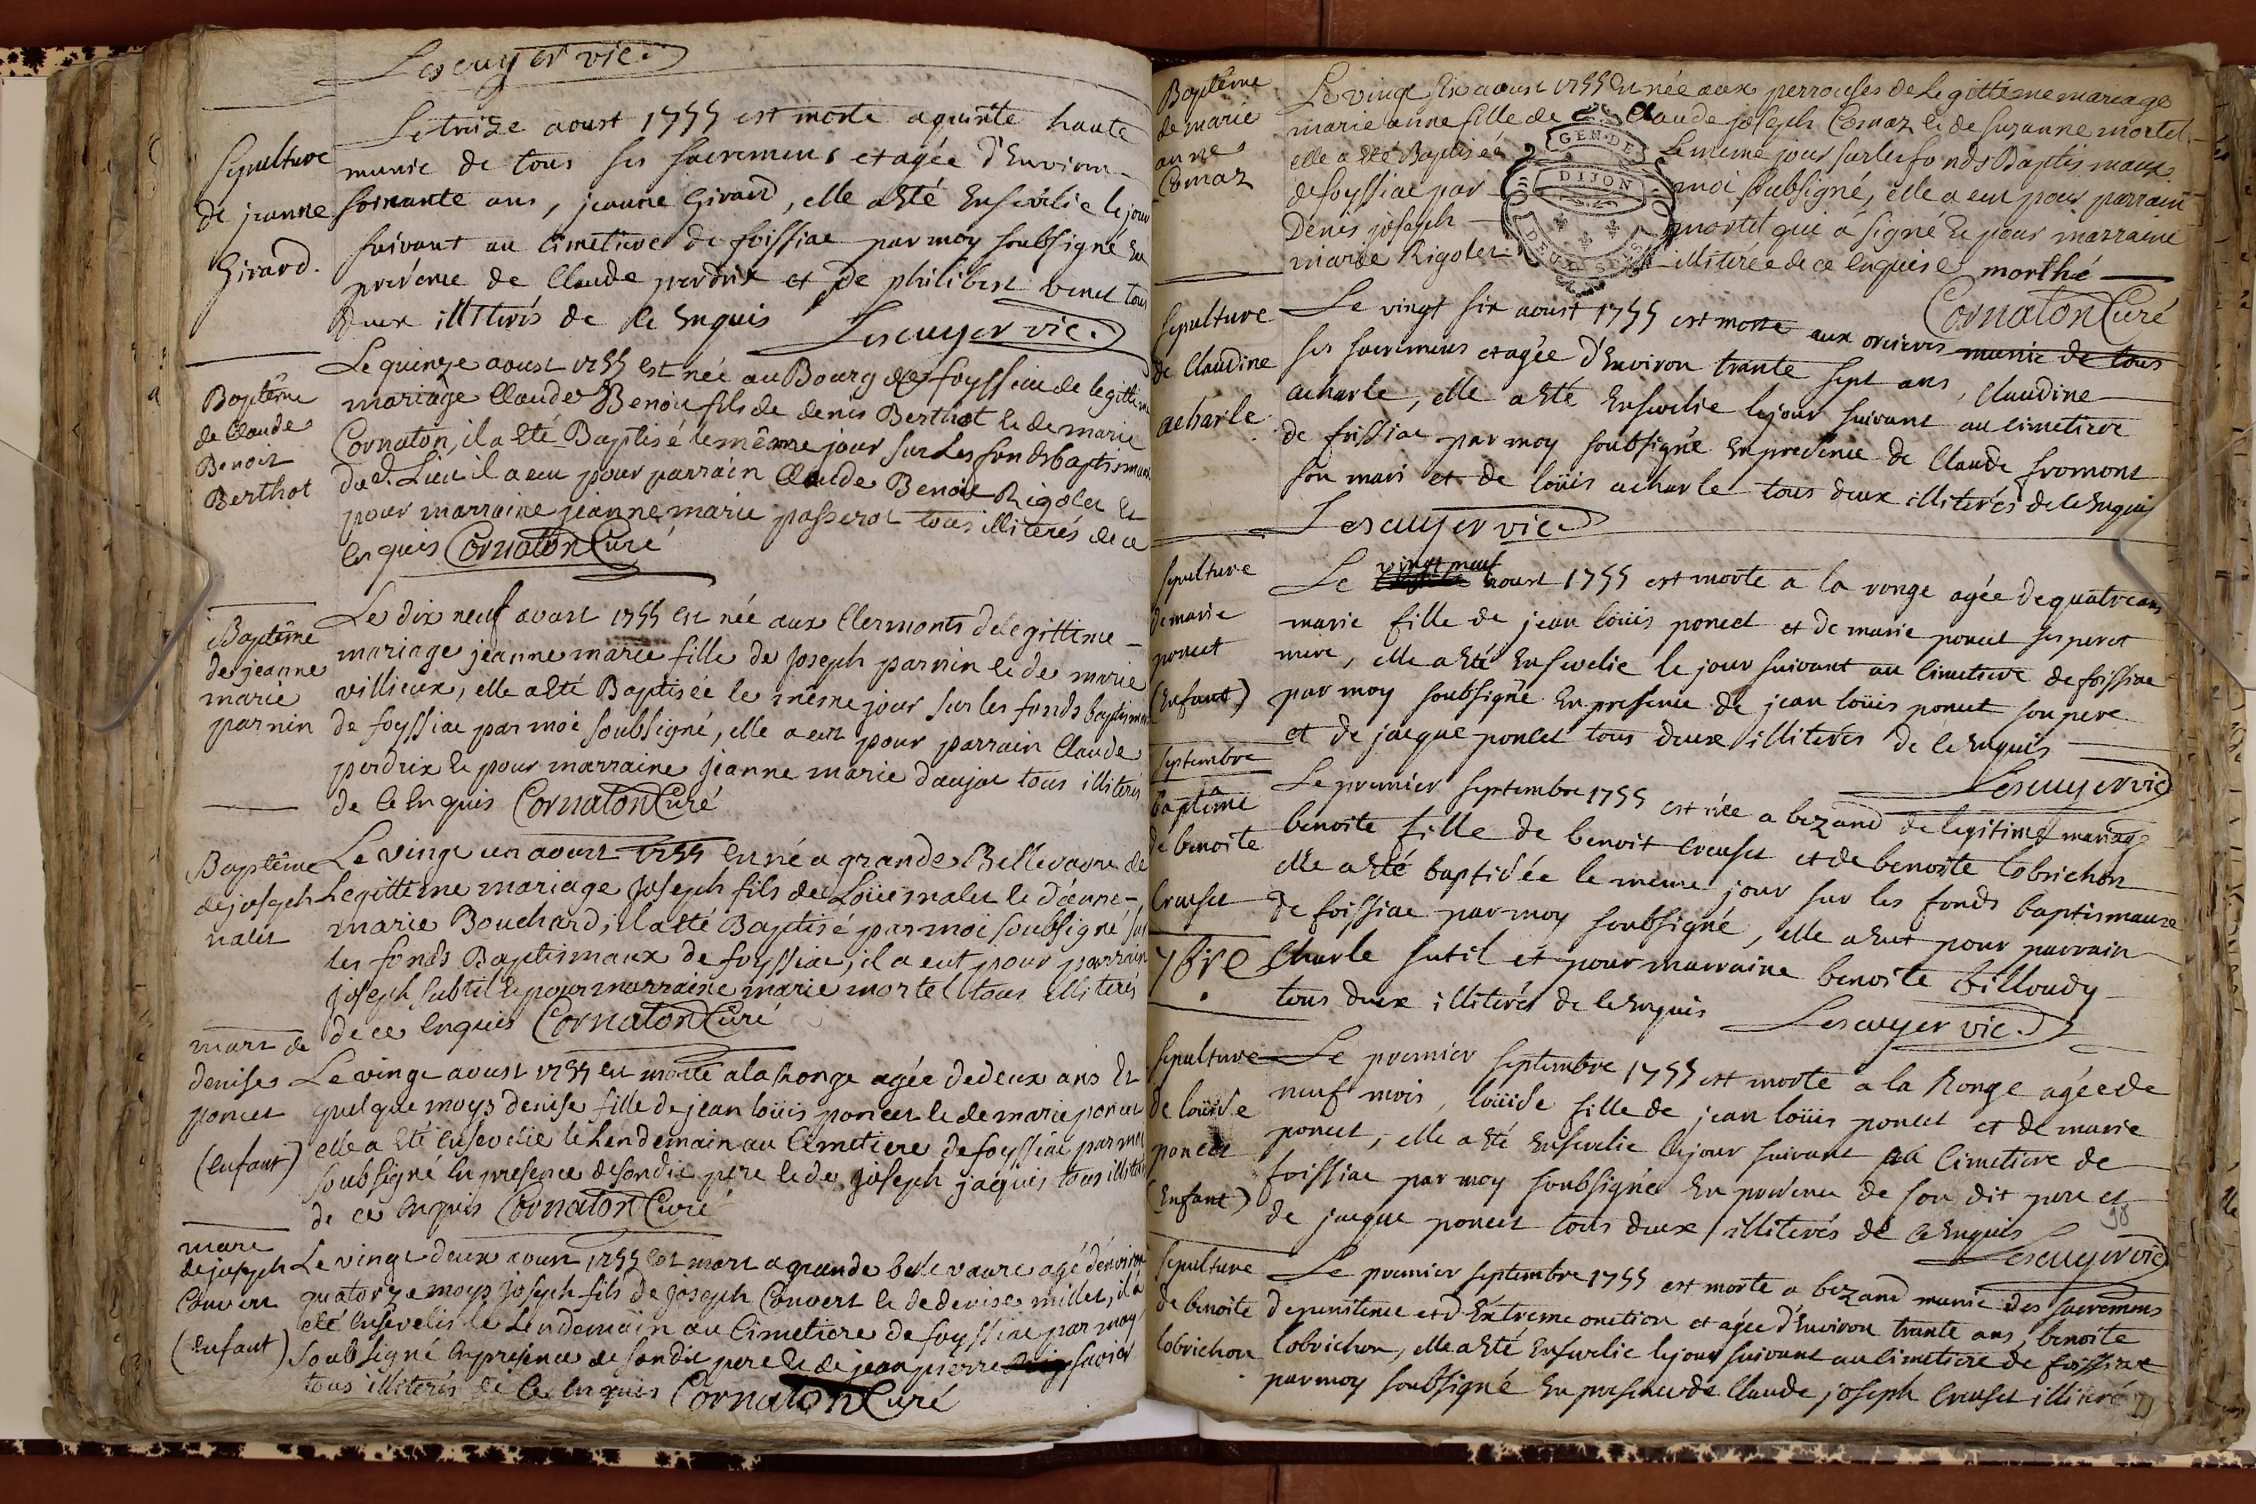 Lescuyer vic.
Sepulture
de jeanne
Girard.
Le treize aoust 1755 est morte a quinte haute
munie de tous ses sacremens et agée d'Environ
soixante ans, jeanne Girard, elle a Eté Ensevélie le jour
suivant au Cimetiere de foissiac par moy soubsigné En
présence de Claude perdrix et de philibert venet tous
deux illiterés de ce Enquis Lescuyer vic.
Baptême
de Claude
Benoit
Berthot
Le quinze aoust 1755 est née au Bourg de foyssiac de legittime
mariage Claude Benoit fils de denis Berthot Et de marie
Cornaton, il a Eté Baptisé le même jour sur Les fonds baptismaux
dud. Lieu il a eu pour parrain Claude Benoit Rigolet Et
pour marraine jeanne marie passerot tous illiterés de ce
Enquis Cornaton Curé
Baptême
de jeanne
marie
parnin
Le dix neuf aoust 1755 Est née aux Clermonts de legittime
mariage jeanne marie fille de Joseph parnin Et de marie
villieux, elle a Eté Baptisée le même jour sur les fonds baptismaux
de foyssiac par moi soubsigné, elle a eut pour parrain Claude
perdrix Et pour marraine jeanne marie daujat tous illiterés
de ce Enquis Cornaton Curé
Baptême
de joseph
nalet
Le vingt un aoust 1755 Est né a grande Bellevavre de
Legittime mariage Joseph fils de Loüis nalet Et d'anne
marie Bouchard, il a Eté Baptisé par moi soubsigné sur
les fonds Baptismaux de foyssiac, il a eut pour parrain
Joseph subtil Et pour marraine marie mortel tous illiterés
de ce Enquis Cornaton Curé
mort de
denise
poncet
(Enfant)
Le vingt aoust 1755 Est morte a la Ronge agée de deux ans Et
quelque moys denise fille de jean loüis poncet Et de marie poncet
elle a Eté Ensevelie le Lendemain au Cimetiere de foyssiac par moi
soubsigné En presence de son dit pere Et de joseph jaquis tous illiterés
de ce Enquis Cornaton Curé
mort
de joseph
Convert
(Enfant)
Le vingt deux aoust 1755 Est mort a grande bellevavre agé d'environ
quatorze moys Joseph fils de joseph Convert Et de denise millet, il a
eté Ensevelis le Lendemain au Cimetiere de foyssiac par moy
soubsigné En presence de son dit pere Et de jean pierre savior
tous illiterés de Ce Enquis Cornaton Curé
Baptême
de marie
anne
Comaz
Le vingt six aoust 1755 Est née aux perrouses de Legittime mariage
marie anne fille de Claude joseph Comaz Et de suzanne mortel
elle a Eté Baptisée Le meme jour sur les fonds Baptismaux
de foyssiac par moi soubsigné, elle a eut pour parrain
Denis joseph mortel qui a signé Et pour marraine
marie Rigolet illiterée de ce Enquise morthé
Cornaton Curé
GEN. DE
DIJON
DEUX S
Sepulture
de Claudine
acharle
Le vingt six aoust 1755 est morte aux orcieres munie de tous
ses sacremens et agée d'Environ trante sept ans, Claudine
acharle, elle a Eté Ensevelie le jour suivant au Cimetiere
de foissiac par moy soubsigné En presence de Claude fromont
son mari et de loüis acharle tous deux illiterés de ce Enquis
Lescuyer vic.
Sepulture
de marie
poncet
(Enfant)
Le vingt neuf aoust 1755 est morte a la ronge agée de quatre ans
marie fille de jean loüis poncet et de marie poncet ses pere et
mere, elle a Eté Ensevelie le jour suivant au Cimetiere de foissiac
par moy soubsigné En presence de jean loüis poncet son pere
et de jacque poncet tous deux illiterés de ce Enquis
Lescuyer vic
Septembre
baptême
de benoite
Creuset
7bre
Le premier septembre 1755 est née a bezand de legitime mariage
benoite fille de benoit Creuset et de benoite lobrichon
elle a Eté baptisée le meme jour sur les fonds baptismaux
de foissiac par moy soubsigné, elle a Eut pour parrain
Charle sutil et pour marraine benoite billoudy
tous deux illiterés de ce Enquis Lescuyer vic.
Sepulture
de loüise
poncet
(Enfant)
Le premier septembre 1755 est morte a la Ronge agée de
neuf mois, loüise fille de jean loüis poncet et de marie
poncet, elle a Eté Ensevelie le jour suivant au Cimetiere de
foissiac par moy soubsigné En présence de son dit pere et
de jacque poncet tous deux illiterés de ce Enquis
98
Lescuyer vic
Sepulture
de benoite
lobrichon
Le premier septembre 1755 est morte a bezand munie des sacremens
de penitence et d'Extreme onction et agée d'Environ trante ans, benoite
lobrichon, elle a Eté Ensevelie le jour suivant au Cimetiere de foissiac
par moy soubsigné En presence de Claude joseph Creuset illiteré